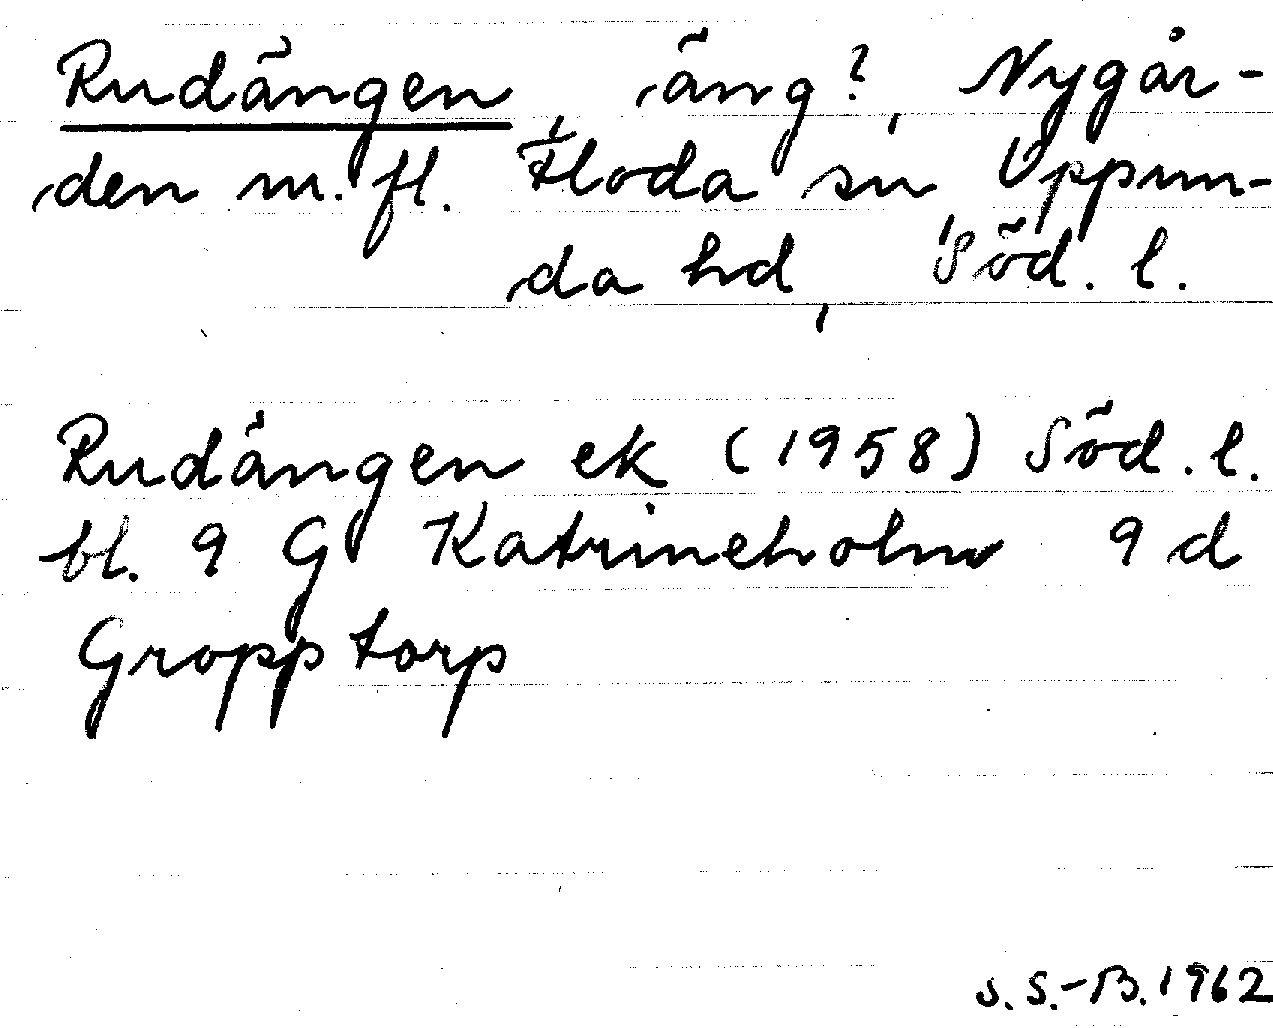 Rudängen, äng?, Nygår-
den m. fl. Floda sn, Oppun-
da hd, Söd. l.
Rudängen ek (1958) Söd. l.
bl. 9 G Katrineholm 9 d
Gropptorp
S. S.-B. 1962